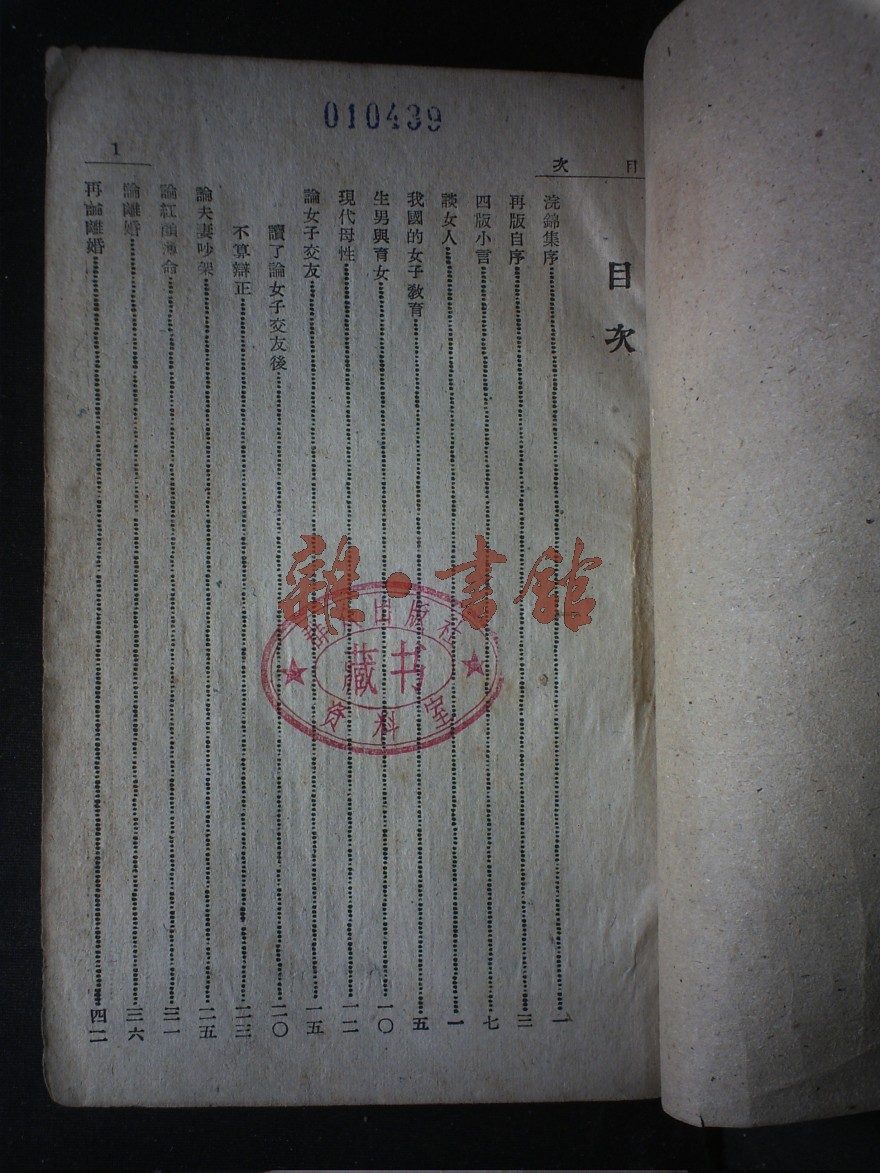 010439
目次
目次
浣錦集序 一
再版自序 三
四版小言 七
談女人 一
我國的女子敎育 五
生男與育女 一〇
現代母性 一二
論女子交友 一五
讀了論女子交友後 二〇
不算辯正 二三
論夫妻吵架 二五
論紅顏薄命 三一
論離婚 三六
再論離婚 四二
1
雜·書館
出版社
藏书
资料室